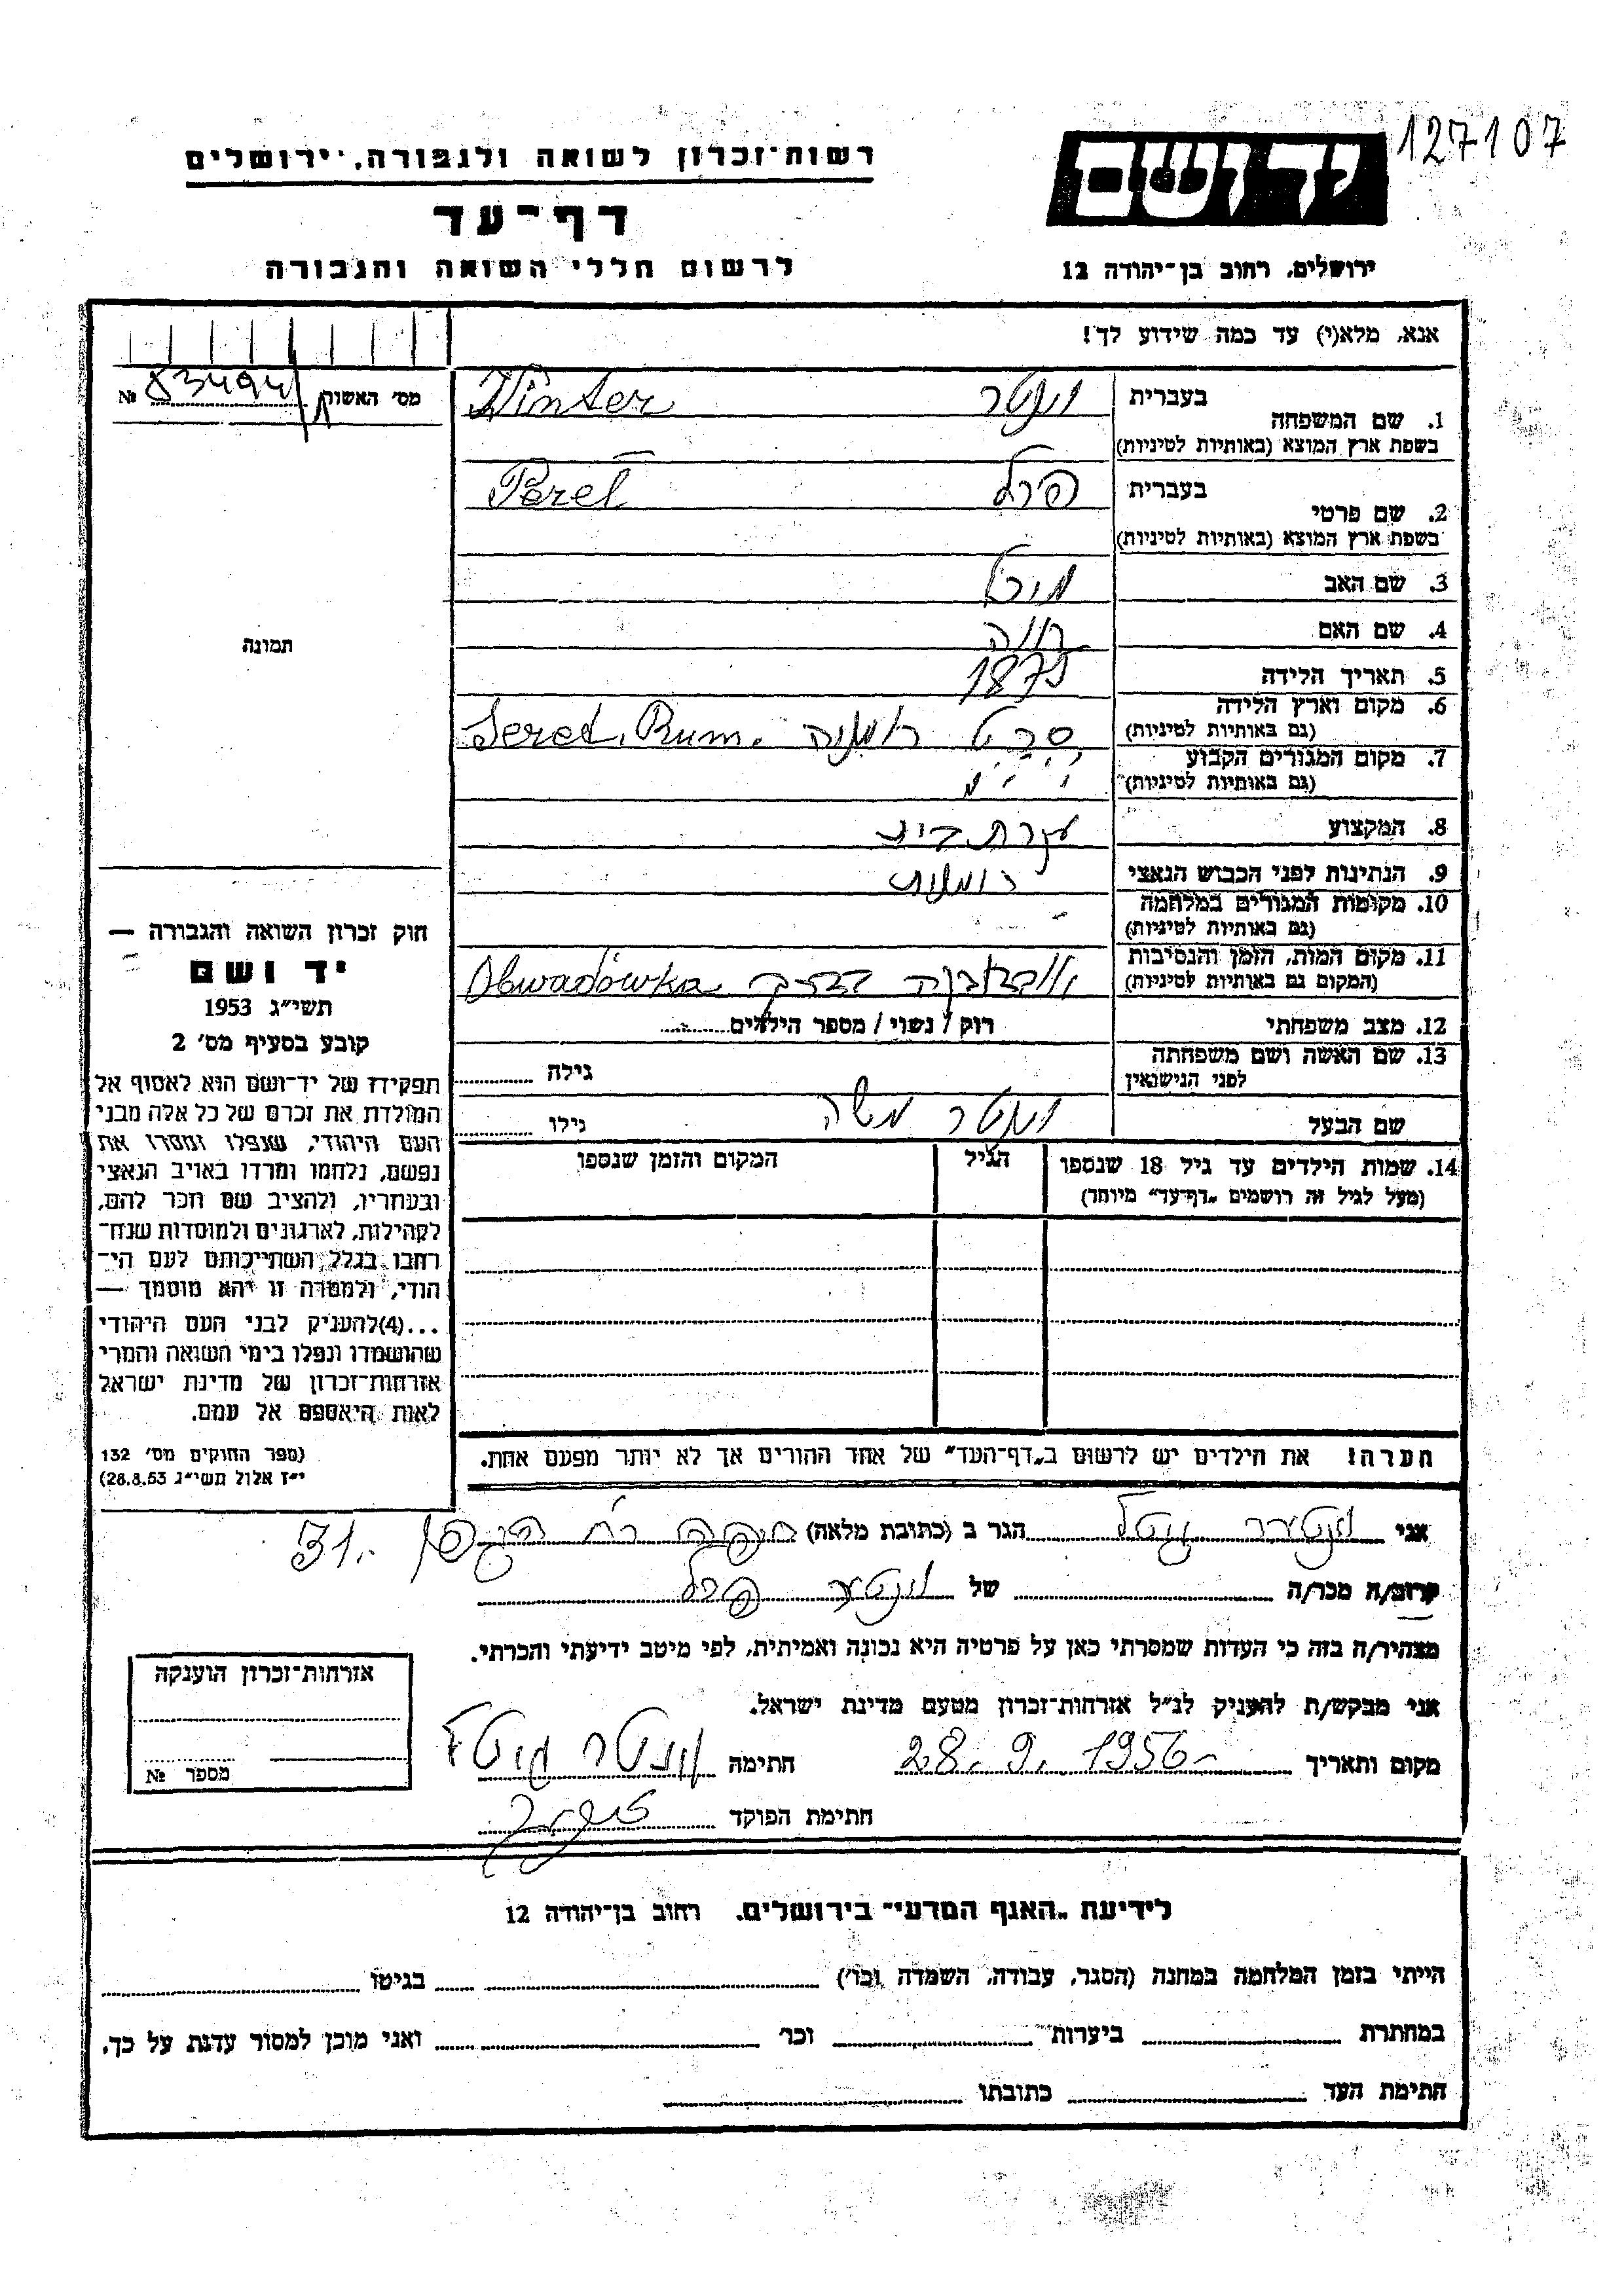 127107
יד ושם
ירושלים, רחוב בן־יהודה 12
רשות־זכרון לשואה ולגבורה, ירושלים
דף־עד
לרשום חללי השואה והגבורה
אנא, מלא(י) עד כמה שידוע לך!
מס׳ האשור 83494 №
1. שם המשפחה בעברית ונטר Winter
בשפת ארץ המוצא (באותיות לטיניות)
2. שם פרטי בעברית פרל Perel
בשפת ארץ המוצא (באותיות לטיניות)
3. שם האב
4. שם האם חוה
5. תאריך הלידה 1875
6. מקום וארץ הלידה סרט רומניה Seret, Rum.
(גם באותיות לטיניות)
7. מקום המגורים הקבוע
(גם באותיות לטיניות)
8. המקצוע עקרת בית
9. הנתינות לפני הכבוש הנאצי רומנית
10. מקומות המגורים במלחמה
(גם באותיות לטיניות)
11. מקום המות, הזמן והנסיבות Obwadówka
(המקום גם באותיות לטיניות)
12. מצב משפחתי רוק / נשוי / מספר הילדים
13. שם האשה ושם משפחתה
לפני הנישואין גילה
שם הבעל ונטר משה גילו
14. שמות הילדים עד גיל 18 שנספו הגיל המקום והזמן שנספו
(מעל לגיל זה רושמים „דף־עד״ מיוחד)
הערה! את הילדים יש לרשום ב„דף־העד״ של אחד ההורים אך לא יותר מפעם אחת.
תמונה
חוק זכרון השואה והגבורה —
יד ושם
תשי״ג 1953
קובע בסעיף מס׳ 2
תפקידו של יד־ושם הוא לאסוף אל
המולדת את זכרם של כל אלה מבני
העם היהודי, שנפלו ומסרו את
נפשם, נלחמו ומרדו באויב הנאצי
ובעוזריו, ולהציב שם וזכר להם,
לקהילות, לארגונים ולמוסדות שנח־
רבו בגלל השתייכותם לעם הי־
הודי, ולמטרה זו יהא מוסמך —
...(4)להעניק לבני העם היהודי
שהושמדו ונפלו בימי השואה והמרי
אזרחות־זכרון של מדינת ישראל
לאות היאספם אל עמם.
(ספר החוקים מס׳ 132
י״ז אלול תשי״ג 28.8.53)
אני ונטר הגר ב (כתובת מלאה) חיפה רח׳ 31.
קרוב/ה מכר/ה של ונטר פרל
מצהיר/ה בזה כי העדות שמסרתי כאן על פרטיה היא נכונה ואמיתית, לפי מיטב ידיעתי והכרתי.
אני מבקש/ת להעניק לנ״ל אזרחות־זכרון מטעם מדינת ישראל.
מקום ותאריך 28.9.1956 חתימה ונטר
חתימת הפוקד
אזרחות־זכרון הוענקה
מספר №
לידיעת „האגף המדעי״ בירושלים, רחוב בן־יהודה 12
הייתי בזמן המלחמה במחנה (הסגר, עבודה, השמדה וכו׳) בגיטו
במחתרת ביערות וכו׳ ואני מוכן למסור עדות על כך.
חתימת העד כתובתו